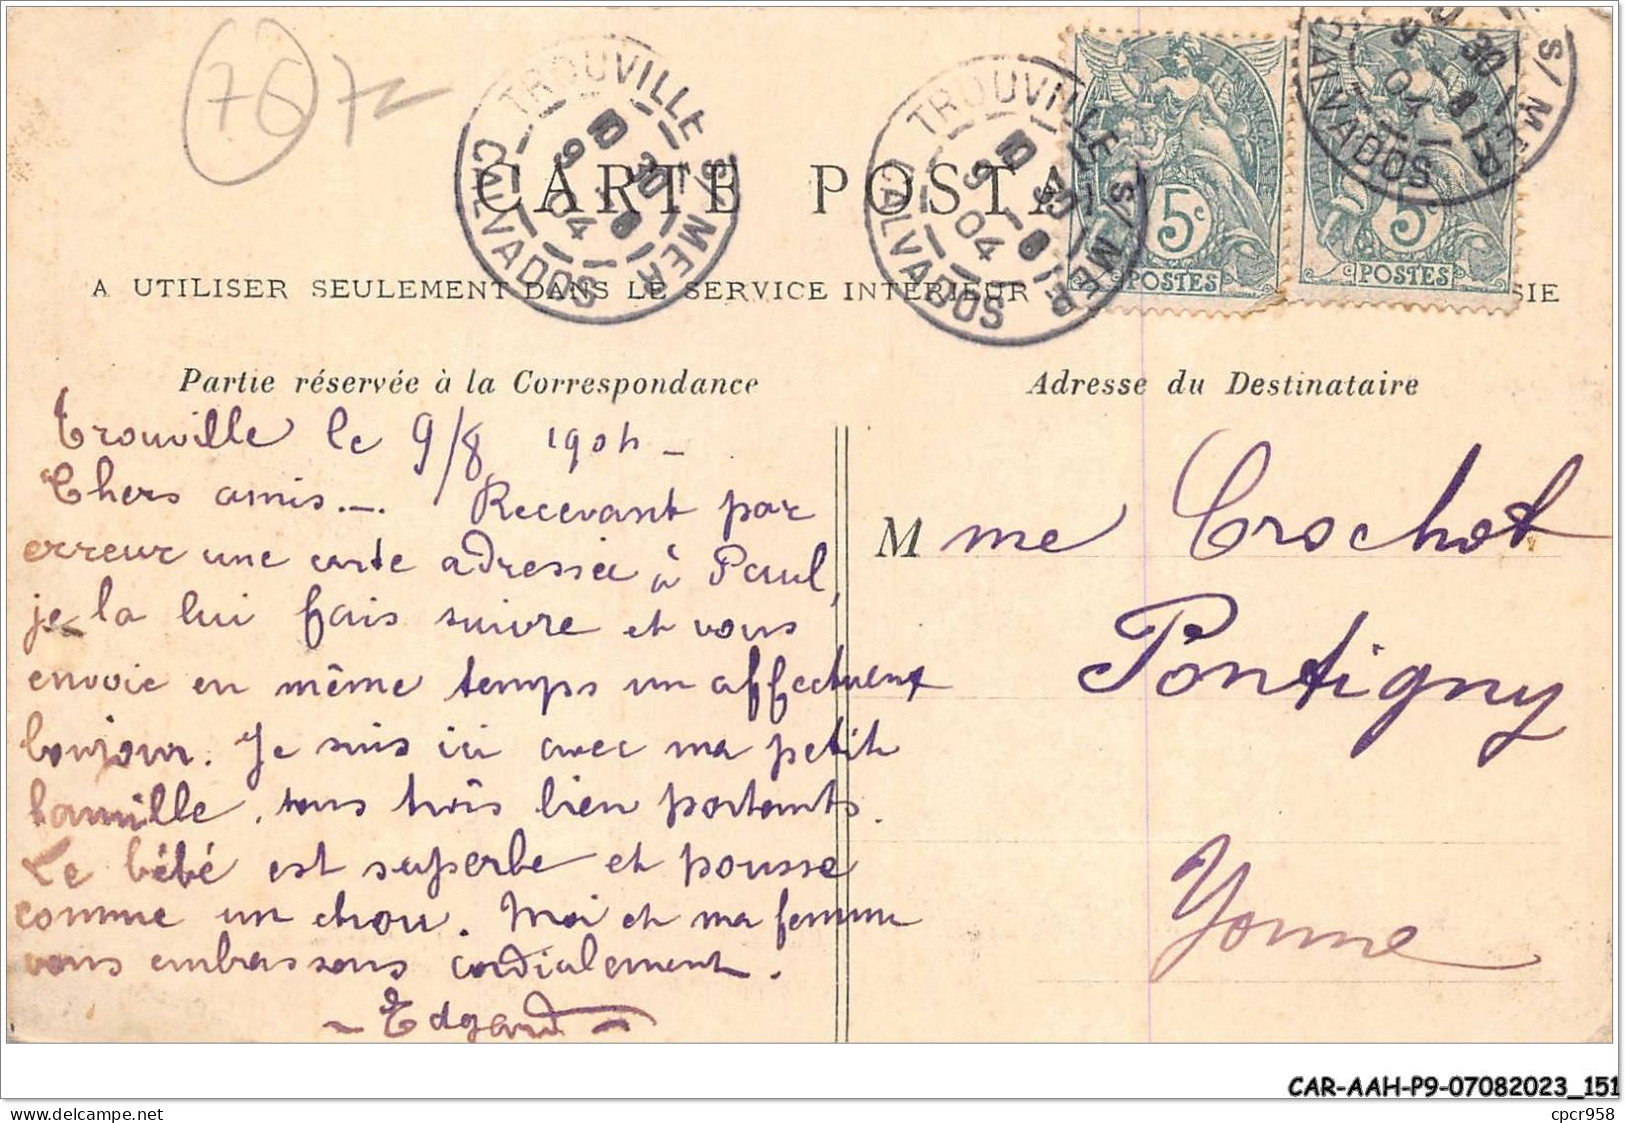 767
TROUVILLE S/ MER
CALVADOS
TROUVILLE S/ MER
CALVADOS
S/ MER
CALVADOS
CARTE POSTA
5c
POSTES
5c
POSTES
A UTILISER SEULEMENT DANS LE SERVICE INTÉRIEUR
SIE
Partie réservée à la Correspondance
Adresse du Destinataire
Trouville le 9/8 1904 -
Chers amis.-. Recevant par
erreur une carte adressée à Paul,
je la lui fais suivre et vous
envoie en même temps un affectueux
bonjour. Je suis ici avec ma petite
famille, tous trois bien portants.
Le bébé est superbe et pousse
comme un chou. Moi et ma femme
vous embrassons cordialement.
- Edgard -
Mme Crochot
Pontigny
Yonne
CAR-AAH-P9-07082023_151
delcampe.net
cpcr958